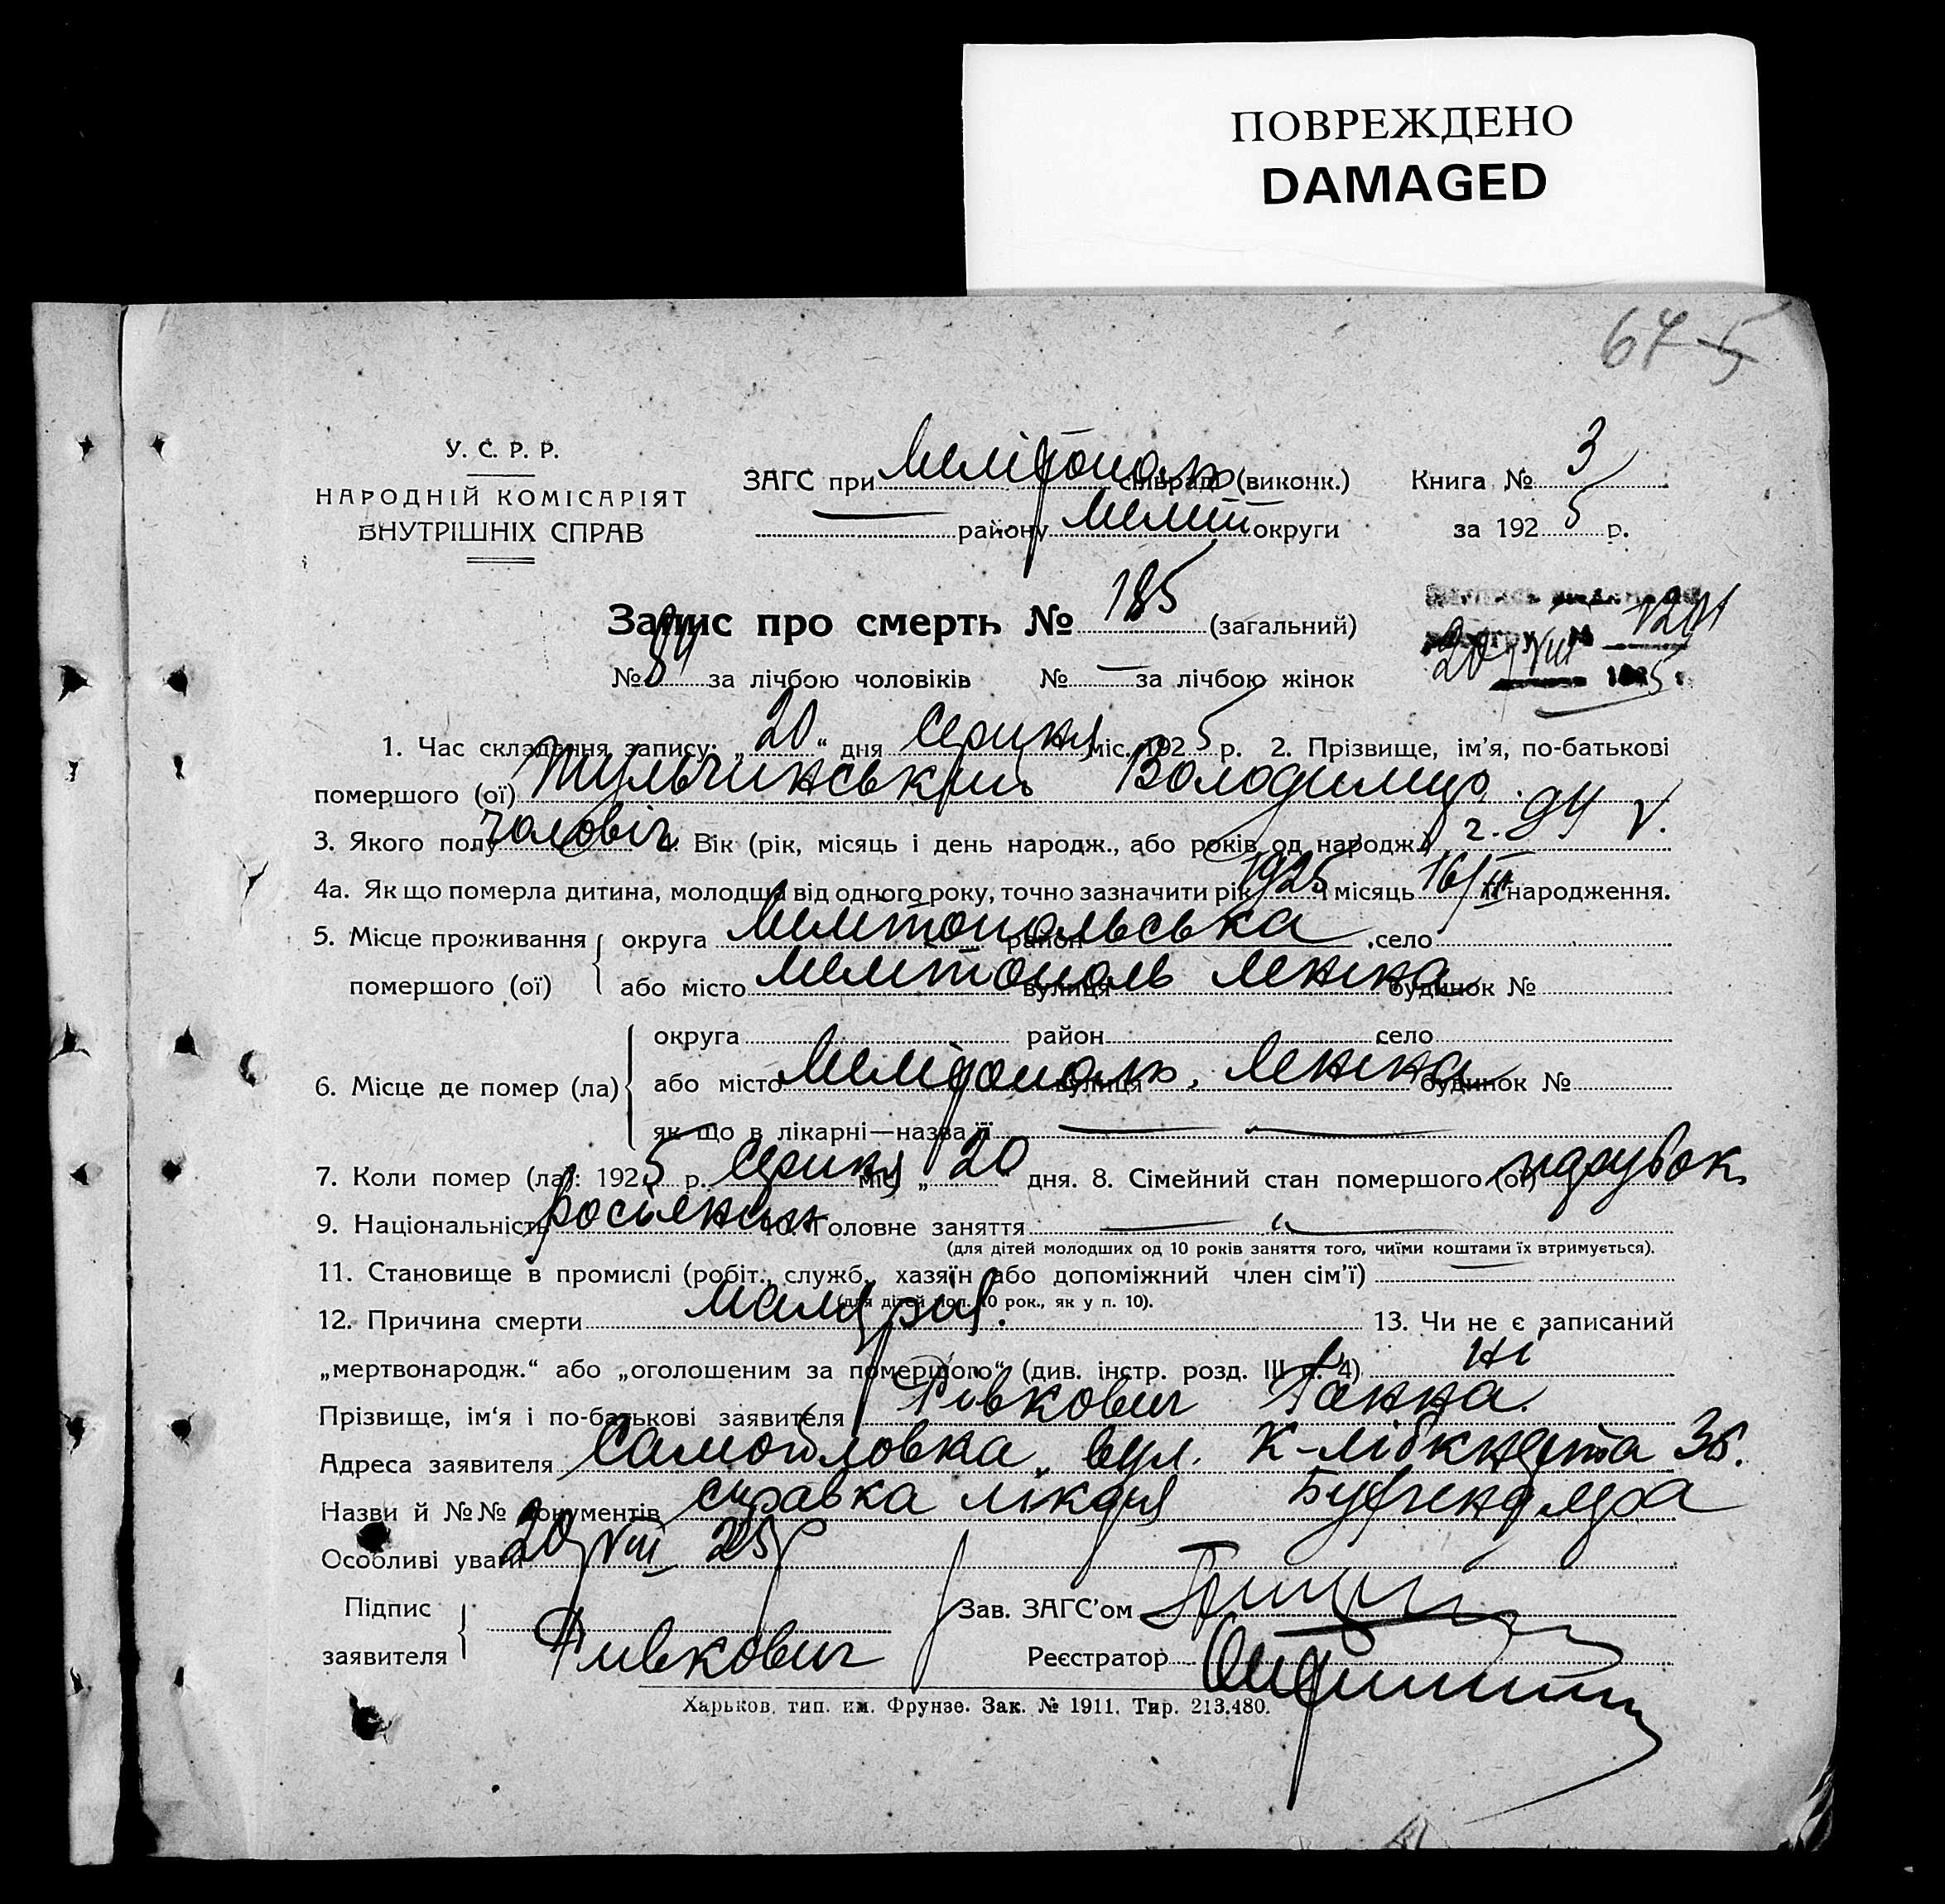 ПОВРЕЖДЕНО
DAMAGED
64 5
У. С. Р. Р.
НАРОДНІЙ КОМІСАРІЯТ
ВНУТРІШНІХ СПРАВ
ЗАГС при Мелітополь сільраді (виконк.)
району Меліт округи
Книга № 3
за 1925 р.
Запис про смерть № 185 (загальний)
№ за лічбою чоловіків № — за лічбою жінок
20/VIII 1925
1. Час складення запису: „20“ дня Серпня міс. 1925 р. 2. Прізвище, ім'я, по-батькові
помершого (ої) Тульчинський Володимир
3. Якого полу чоловіч 4. Вік (рік, місяць і день народж., або років од народж.)
4а. Як що померла дитина, молодша від одного року, точно зазначити рік 1925 і місяць 16/ її народження.
5. Місце проживання помершого (ої) округа Мелітопольська район село
або місто Мелітополь вулиця Леніна будинок №
6. Місце де помер (ла) округа район село
або місто Мелітополь, вулиця Леніна будинок №
як що в лікарні—назва її —
7. Коли помер (ла): 1925 р. Серпня міс. „20 дня. 8. Сімейний стан помершого (ої) парубок
9. Національність росіянин 10. Головне заняття —
(для дітей молодших од 10 років заняття того, чиїми коштами їх втримується).
11. Становище в промислі (робіт., служб., хазяїн або допоміжний член сім'ї) —
(для дітей мол. 10 рок., як у п. 10).
12. Причина смерти 13. Чи не є записаний
„мертвонародж.“ або „оголошеним за помершого“ (див. інстр. розд. III п. 4) Ні
Прізвище, ім'я і по-батькові заявителя Рівкович Ганна.
Адреса заявителя вул. К-Лібкнехта 36.
Назви й №№ документів справка лікаря
Особливі уваги 20/VIII 25
Підпис заявителя Ривкович
Зав. ЗАГС'ом
Реєстратор
Харьков, тип. им. Фрунзе. Зак. № 1911. Тир. 213.480.